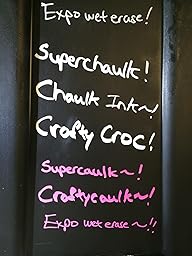 Expo wet erase!
Superchaulk!
Chaulk Ink~!
Crafty Croc!
Supercaulk~!
Craftycaulk~!
Expo wet erase~!!